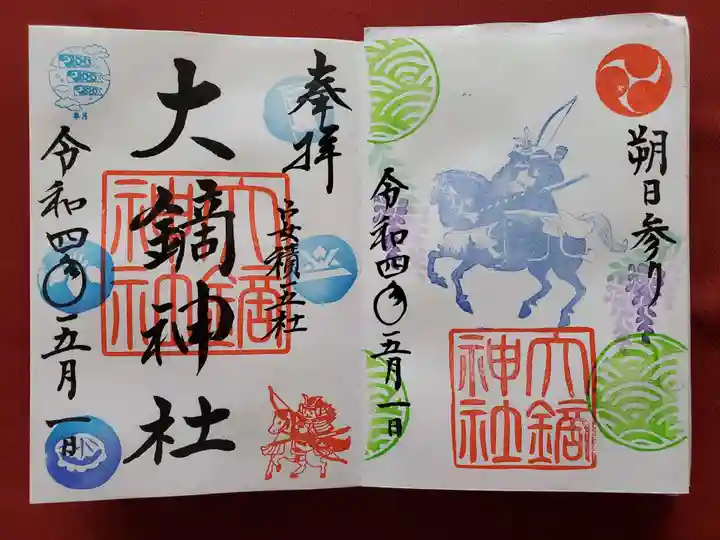 朔日参り
大鏑神社
令和四年五月一日
奉拝
安積五社
大鏑神社
大鏑神社
令和四年五月一日
皐月